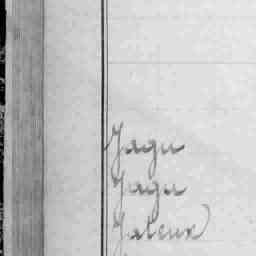 Jagu
Jagu
Jaleux